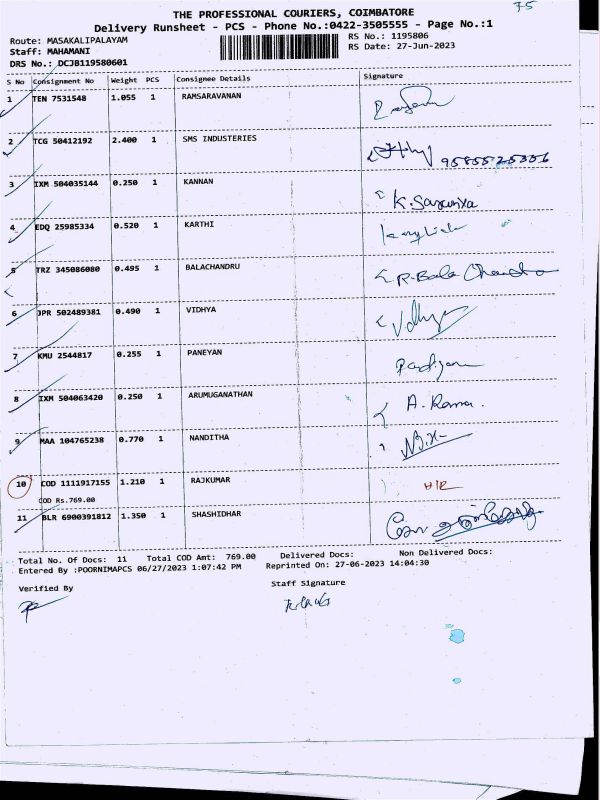 75
THE PROFESSIONAL COURIERS, COIMBATORE
Delivery Runsheet - PCS - Phone No.:0422-3505555 - Page No.:1
Route: MASAKALIPALAYAM RS No.: 1195806
Staff: MAHAMANI RS Date: 27-Jun-2023
DRS No.: DCJB119580601
S No Consignment No Weight PCS Consignee Details Signature
1 TEN 7531548 1.055 1 RAMSARAVANAN
2 TCG 50412192 2.400 1 SMS INDUSTERIES 9585525356
3 IXM 504035144 0.250 1 KANNAN K. Saranya
4 EDQ 25985334 0.520 1 KARTHI
5 TRZ 345086080 0.495 1 BALACHANDRU R. Bala Chandra
6 JPR 502489381 0.490 1 VIDHYA Vidhya
7 KMU 2544817 0.255 1 PANEYAN
8 IXM 504063420 0.250 1 ARUMUGANATHAN A. Rama
9 MAA 104765238 0.770 1 NANDITHA
10 COD 1111917155 1.210 1 RAJKUMAR
COD Rs.769.00
11 BLR 6900391812 1.350 1 SHASHIDHAR
Total No. Of Docs: 11 Total COD Amt: 769.00 Delivered Docs: Non Delivered Docs:
Entered By :POORNIMAPCS 06/27/2023 1:07:42 PM Reprinted On: 27-06-2023 14:04:30
Verified By Staff Signature